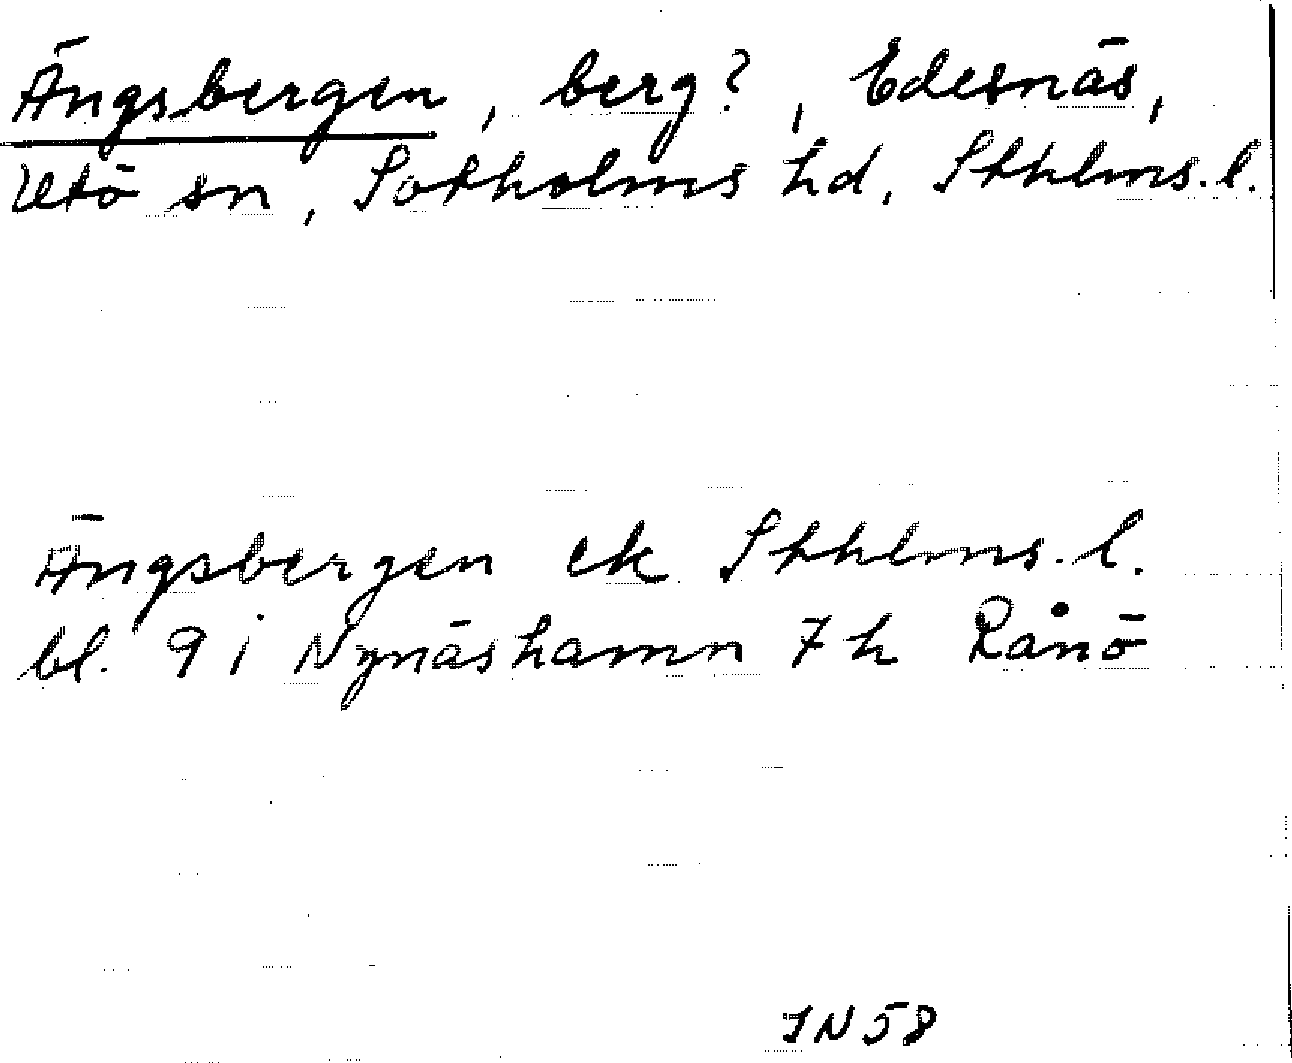 Ängsbergen, berg?, Edesnäs,
Utö sn, Sotholms hd, Sthlms. l.
Ängsbergen ek Sthlms. l.
bl. 9 i Nynäshamn 7 h Rånö
IN 58